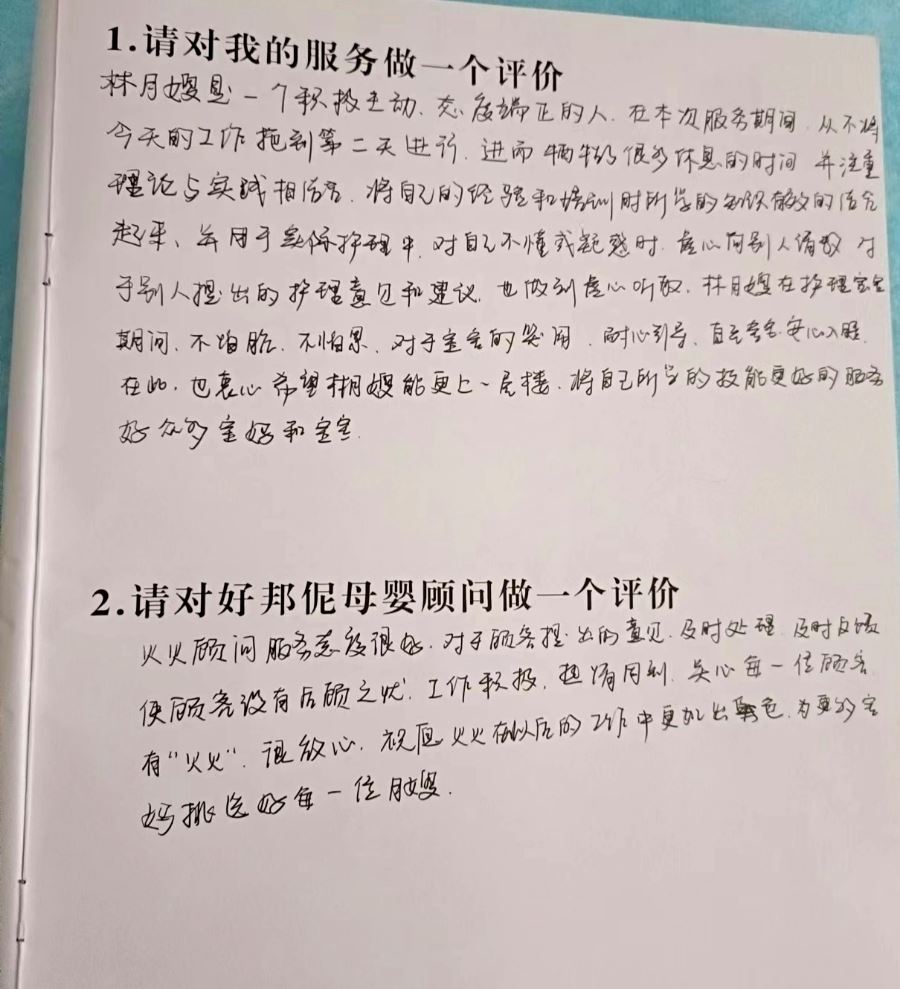 1.请对我的服务做一个评价
林月嫂是一个积极主动、态度端正的人.在本次服务期间.从不将
今天的工作拖到第二天进行.进而牺牲很多休息的时间 并注重
理论与实践相结合.将自己的经验和培训时所学的知识有效的结合
起来、并用于实际护理中.对自己不懂或疑惑时.虚心向别人请教.对
于别人提出的护理意见和建议.也做到虚心听取.林月嫂在护理宝宝
期间、不怕脏、不怕累、对于宝宝的哭闹、耐心引导、直至宝宝安心入睡.
在此.也衷心希望林月嫂能更上一层楼.将自己所学的技能更好的服务
好众多宝妈和宝宝.
2.请对好邦伲母婴顾问做一个评价
火火顾问服务态度很好.对于顾客提出的意见.及时处理.及时反馈
使顾客没有后顾之忧.工作积极.热情周到.关心每一位顾客.
有“火火”.很放心.祝愿火火在以后的工作中更加出色.为更多宝
妈挑选好每一位月嫂.